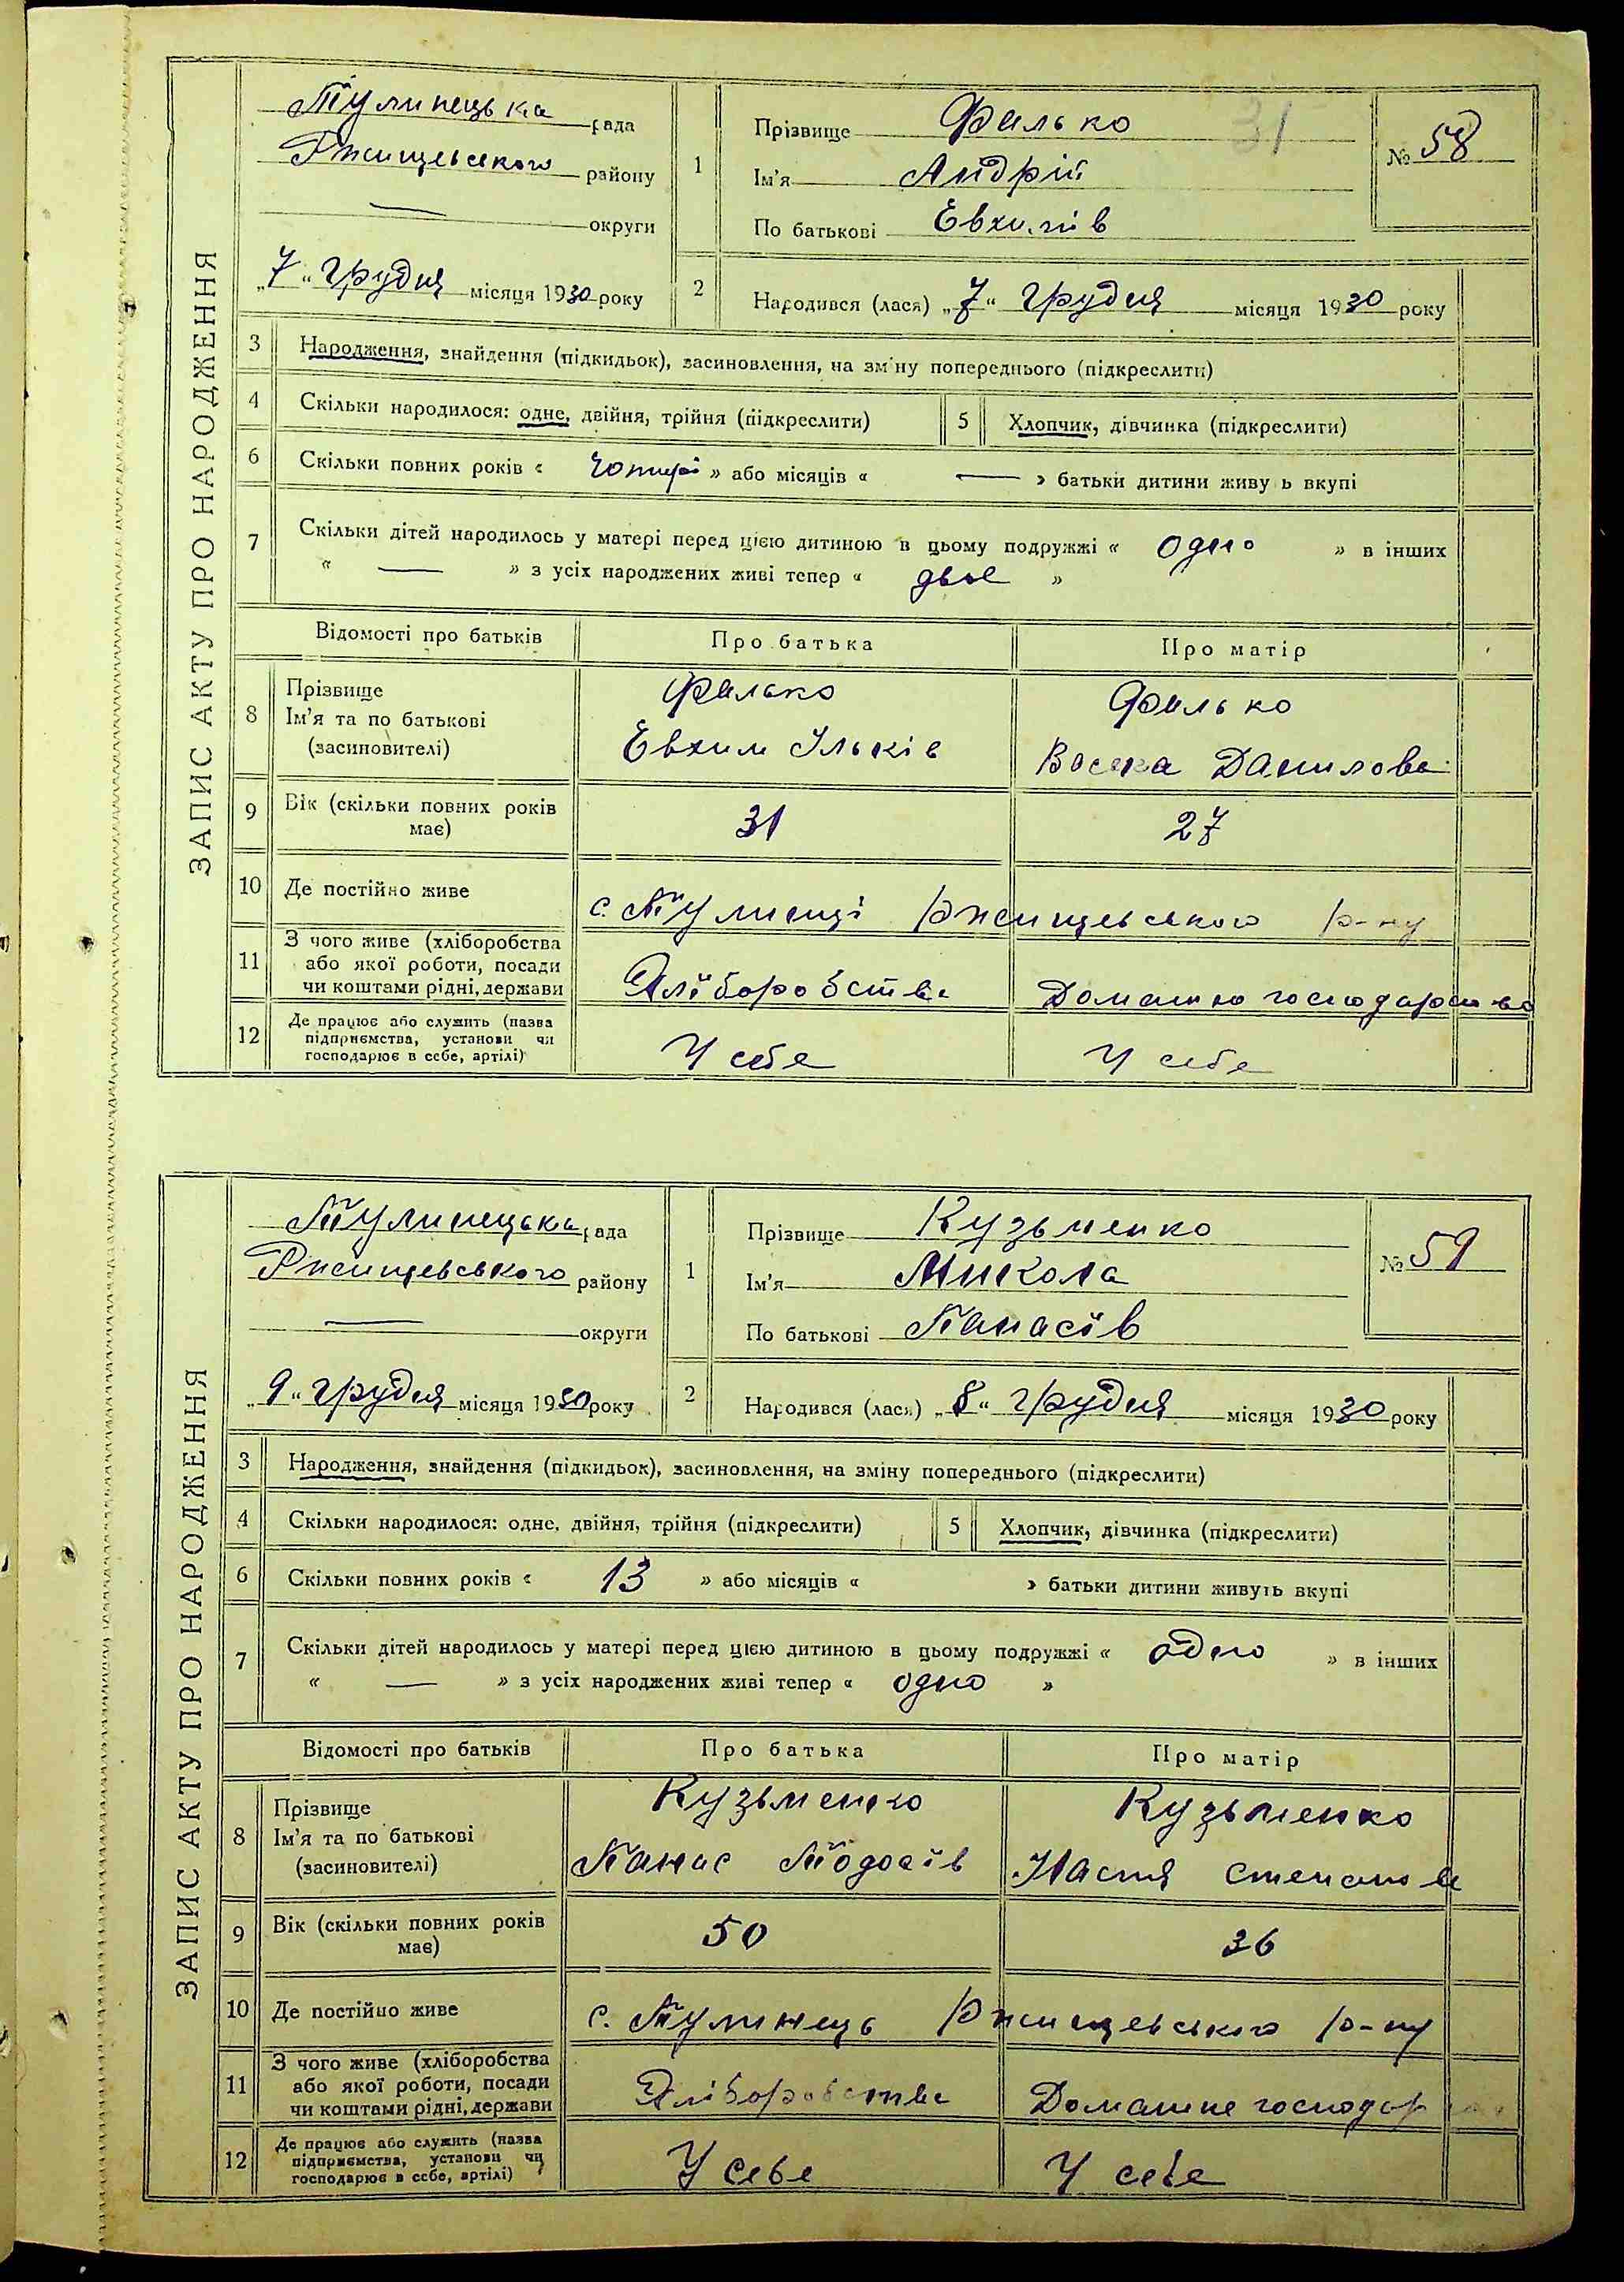 ЗАПИС АКТУ ПРО НАРОДЖЕННЯ
Тулинецька рада
Ржищевського району
— округи
„7“ грудня місяця 1930 року
1
Прізвище Фалько
31
Ім'я Андрій
По батькові Евхимів
№ 58
2
Народився (лася) „7“ грудня місяця 1930 року
3 Народження, знайдення (підкидьок), засиновлення, на зміну попереднього (підкреслити)
4 Скільки народилося: одне, двійня, трійня (підкреслити) 5 Хлопчик, дівчинка (підкреслити)
6 Скільки повних років « чотирі » або місяців « — » батьки дитини живу ь вкупі
7 Скільки дітей народилось у матері перед цією дитиною в цьому подружжі « одно » в інших
« — » з усіх народжених живі тепер « двоє »
Відомості про батьків Про батька Про матір
8 Прізвище Фалько Фалько
Ім'я та по батькові Евхим Ільків Данилова
(засиновителі)
9 Вік (скільки повних років 31 27
має)
10 Де постійно живе с. Тулинці Ржищевського р-ну
11 З чого живе (хліборобства
або якої роботи, посади
чи коштами рідні, держави Хліборобства Домашнє господарство
12 Де працює або служить (назва
підприємства, установи чи
господарює в себе, артілі) У себе У себе
ЗАПИС АКТУ ПРО НАРОДЖЕННЯ
Тулинецька рада
Ржищевського району
— округи
„9“ грудня місяця 1930 року
1
Прізвище Кузьменко
Ім'я Микола
По батькові Панасів
№ 59
2
Народився (лася) „8“ грудня місяця 1930 року
3 Народження, знайдення (підкидьок), засиновлення, на зміну попереднього (підкреслити)
4 Скільки народилося: одне, двійня, трійня (підкреслити) 5 Хлопчик, дівчинка (підкреслити)
6 Скільки повних років « 13 » або місяців « » батьки дитини живуть вкупі
7 Скільки дітей народилось у матері перед цією дитиною в цьому подружжі « одно » в інших
« — » з усіх народжених живі тепер « одно »
Відомості про батьків Про батька Про матір
8 Прізвище Кузьменко Кузьменко
Ім'я та по батькові Панас Тодосів Настя Степанова
(засиновителі)
9 Вік (скільки повних років 50 36
має)
10 Де постійно живе с. Тулинець Ржищевського р-ну
11 З чого живе (хліборобства
або якої роботи, посади
чи коштами рідні, держави Хліборобства Домашнє господар
12 Де працює або служить (назва
підприємства, установи чи
господарює в себе, артілі) У себе У себе